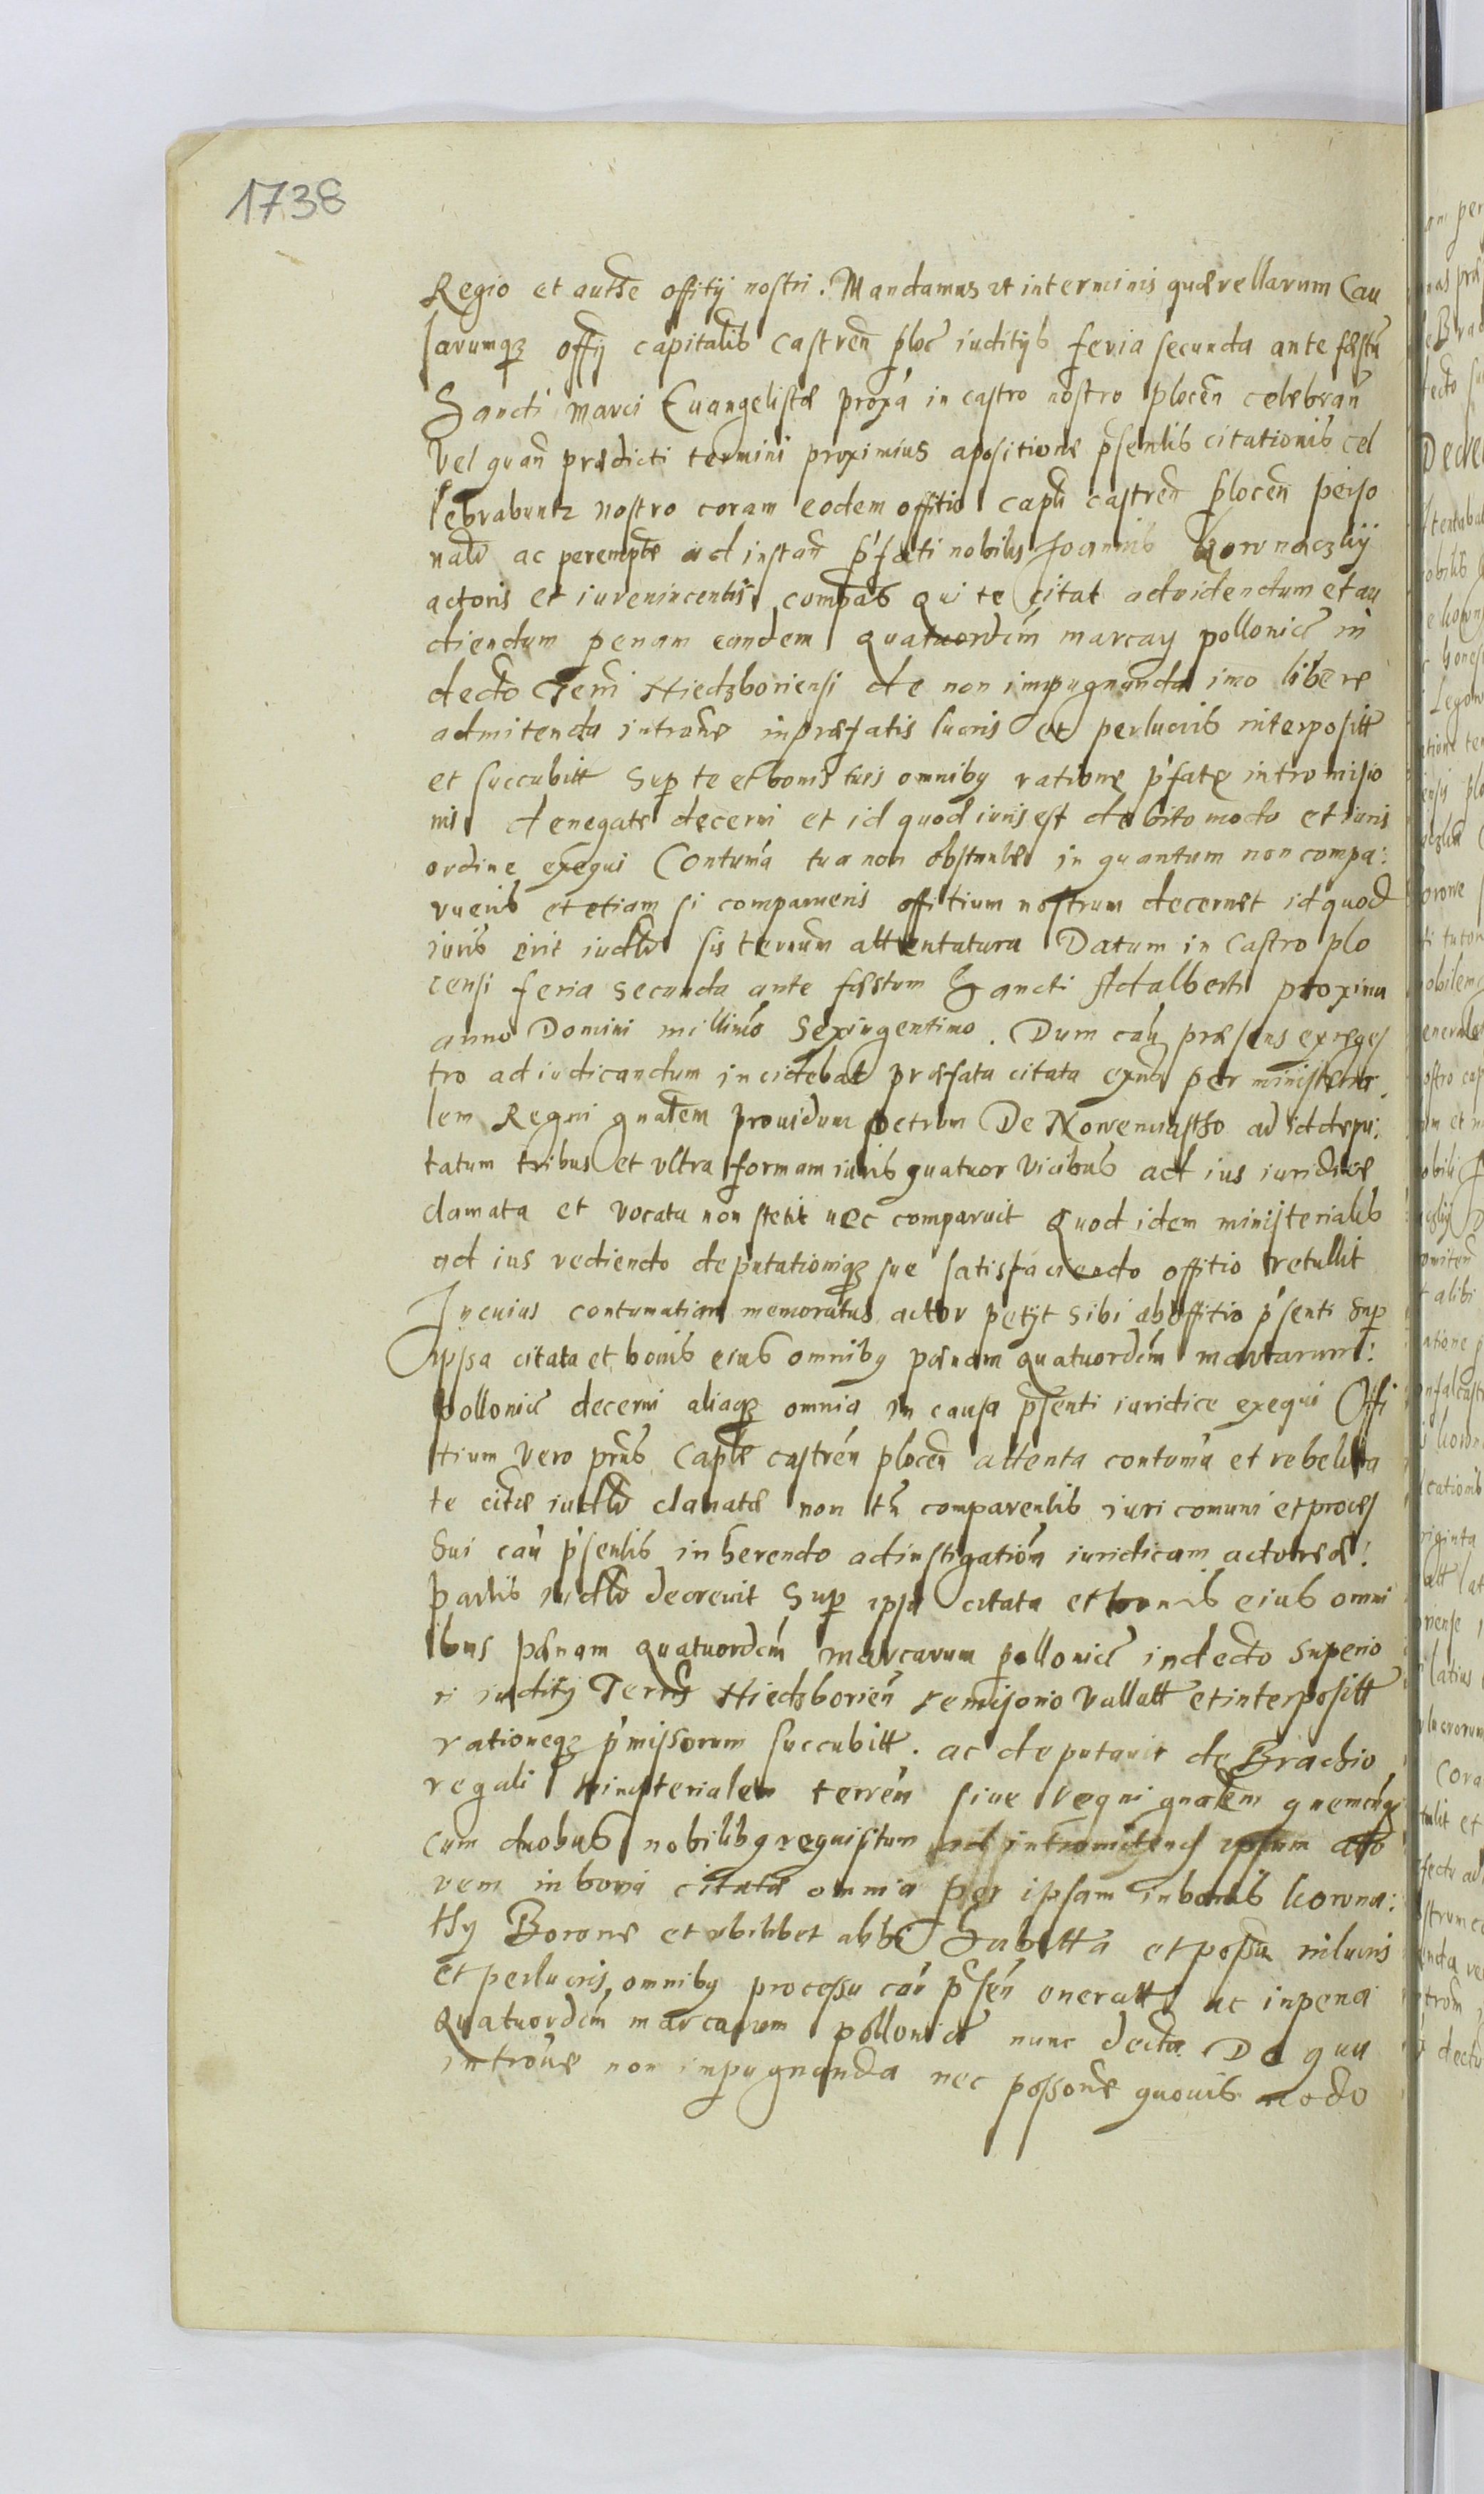 1738
Regio et authe offitÿ nostri. Mandamus ut in terminis quærellarum Cau
sarumqȝ offÿ capitalis Castren ploc iuditÿs feria secunda ante fæstu
Sancti Marci Euangelistæ proxa in castro nostro plocen celebran
Vel quan prædicti termini proximius apositione pśentis citationis cel
lebrabuntr nostro coram eodem offitio capli castren plocen perso
nalr ac perempte ad instan pśfati nobilis Joannis Kownaczkÿ
actoris et iurevincentis compas Qui te citat ad videndum et au
diendum penam eandem quatuordcim marcaÿ pollonicæ in
decto Terri Niedzboriensi de non impugnanda imo libere
admitenda introne in præfatis lucris et perlucris interpositt
et succubitt Sup te et bonis tuis omnibq ratione p'fate intromisio
nis denegate decerni et id quod iuris est debito modo et iuris
ordine exequi Contuma tua non obstante in quantum non compa:
rueris et etiam si comparueris offitium nostrum decernet id quod
iuris erit iudlr sis ternum attentatura Datum in Castro plo
censi feria Secunda ante fæstum Sancti Adalberti proxima
anno Domini millimo Sexingentimo. Dum cau præsens ex reges
tro ad iudicandum incidebat præfata citata exnc per ministeria
lem Regni gnalem prouidum petrum De Nowemiastho ad id depu:
tatum tribus et ultra formam iuris quatuor vicibus ad ius iuridice
clamata et vocata non stetit nec comparuit Quod idem ministerialis
ad ius rediendo deputationiqȝ sue satisfaciendo offitio retullit
In cuius contumatiam memoratus actor petÿt Sibi ab offitio p'senti Sup
ipsa citata et bonis eius omnibq pænam quatuordcim martarum:
pollonicæ decerni aliaqȝ omnia in causa pśenti iuridice exequi Offi
tium Vero prns Caple castren plocen attenta contuma et rebelita
te citæ iudlr clamatæ non tn comparentis iuri comuni et proces
Sui cau p'sentis inherendo ad instigation iuridicam actoreæ:
partis iudlr decreuit Sup ipsa citata et bonis eius omni
bus pænam quatuordcim marcarum pollonicæ indecto Superio
ri iuditÿ Terris Niedzborien remisorio Vallatt et interpositt
rationeqȝ p'missorum succubitt. ac deputauit de Brachio
regali ministerialem terren siue regni gnalem quemcuqȝ
cum duobus nobilibq requisitum ad intromitend ipsum acto
rem in bona citatæ omnia per ipsam in bonis kowna:
thy Borowe et ubilibet alibi Habitta et possa in lucris
et perlucris, omnibq processu cau pśen oneratt ac in pena
Quatuordcim marcarum pollonicæ nunc decta. De qua
introne non impugnanda nec possone quouis modo